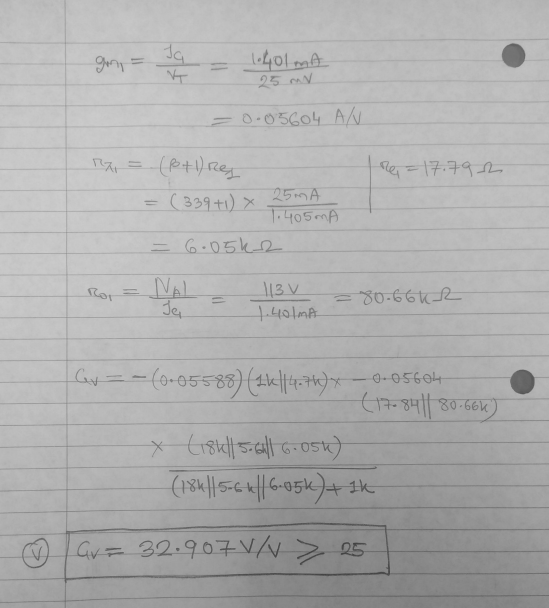 gm₁ = I_C1 / V_T = 1.401mA / 25 mV
= 0.05604 A/V
rπ₁ = (β+1) re₁ | re₁ = 17.79 Ω
= (339+1) × 25mA / 1.405mA
= 6.05kΩ
ro₁ = |V_A| / I_C1 = 113 V / 1.401mA = 80.66kΩ
Gv = -(0.05588)(1k||4.7k) × -0.05604
(17.84||80.66k)
× (18k||5.6k||6.05k) / (18k||5.6k||6.05k) + 1k
(V) Gv = 32.907 V/V ≥ 25